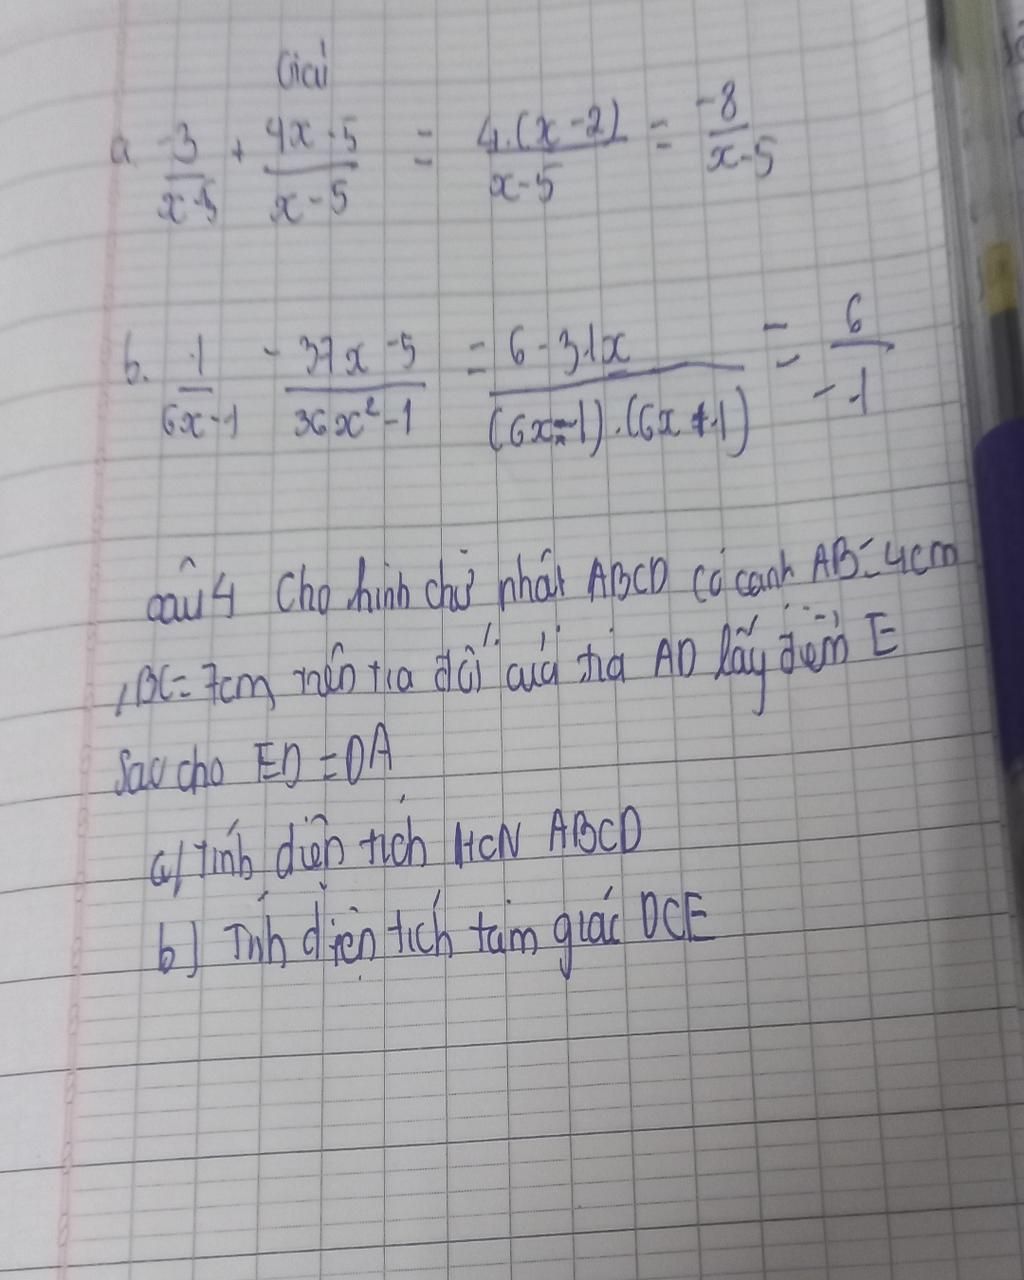 Giải
a. -3/(x-5) + (4x-5)/(x-5) = 4.(x-2)/(x-5) = -8/(x-5)
b. 1/(6x-1) - (37x-5)/(36x²-1) = (6-31x)/((6x-1).(6x+1)) = 6/-1
câu 4 Cho hình chữ nhật ABCD có cạnh AB=4cm
, BC=7cm trên tia đối của tia AD lấy điểm E
sao cho ED=DA
a) Tính diện tích HCN ABCD
b) Tính diện tích tam giác DCE